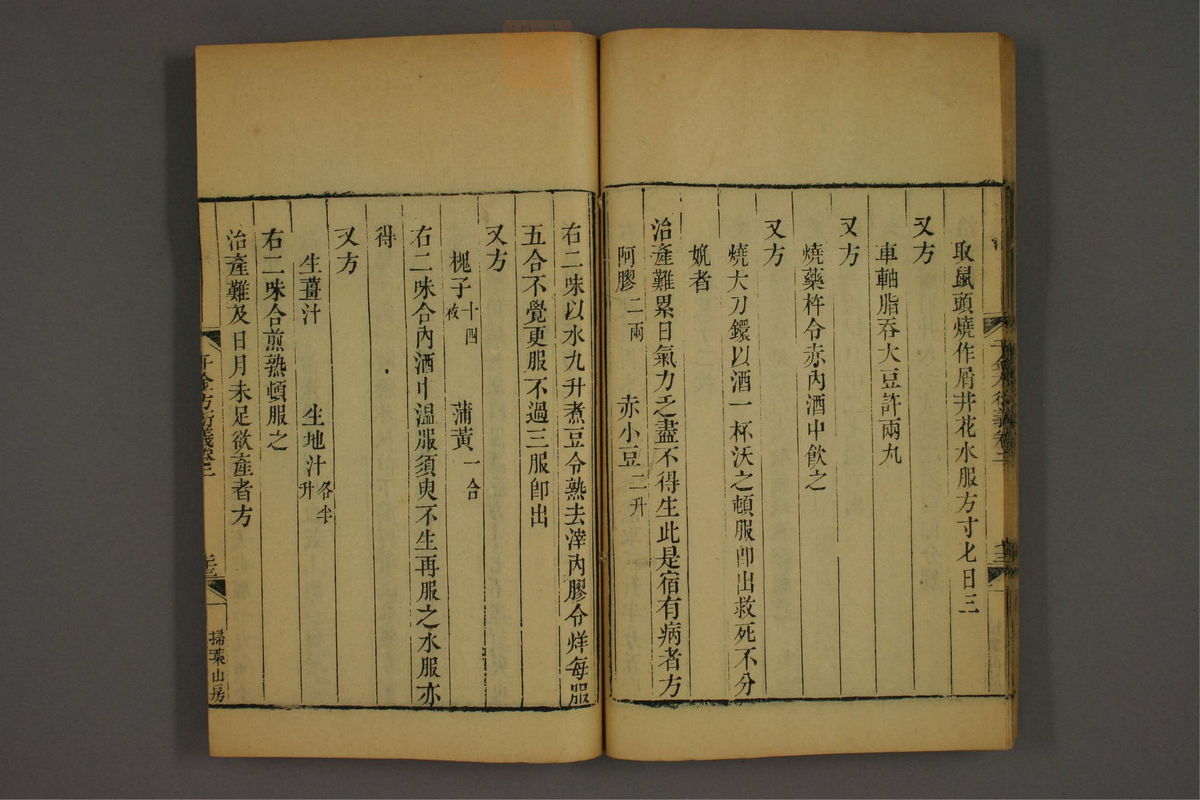 取鼠頭燒作屑井花水服方寸七日三
又方
車軸脂吞大豆許兩丸
又方
燒藥杵令赤內酒中飲之
又方
燒大刀鐶以酒一杯沃之頓服卽出救死不分
娩者
治產難累日氣力乏盡不得生此是宿有病者方
阿膠二兩 赤小豆二升
右二味以水九升煮豆令熟去滓內膠令烊每服
五合不覺更服不過三服卽出
又方
槐子十四枚 蒲黃一合
右二味合內酒中溫服須臾不生再服之水服亦
得
又方
生薑汁 生地汁各半升
右二味合煎熟頓服之
治產難及日月未足欲產者方
千金方衍義卷三
掃葉山房